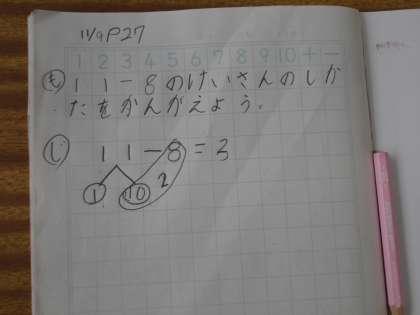 11/9 P27
1 2 3 4 5 6 7 8 9 10 + −
も 11−8のけいさんのしか
たをかんがえよう。
じ 11−8=3
1 10 2